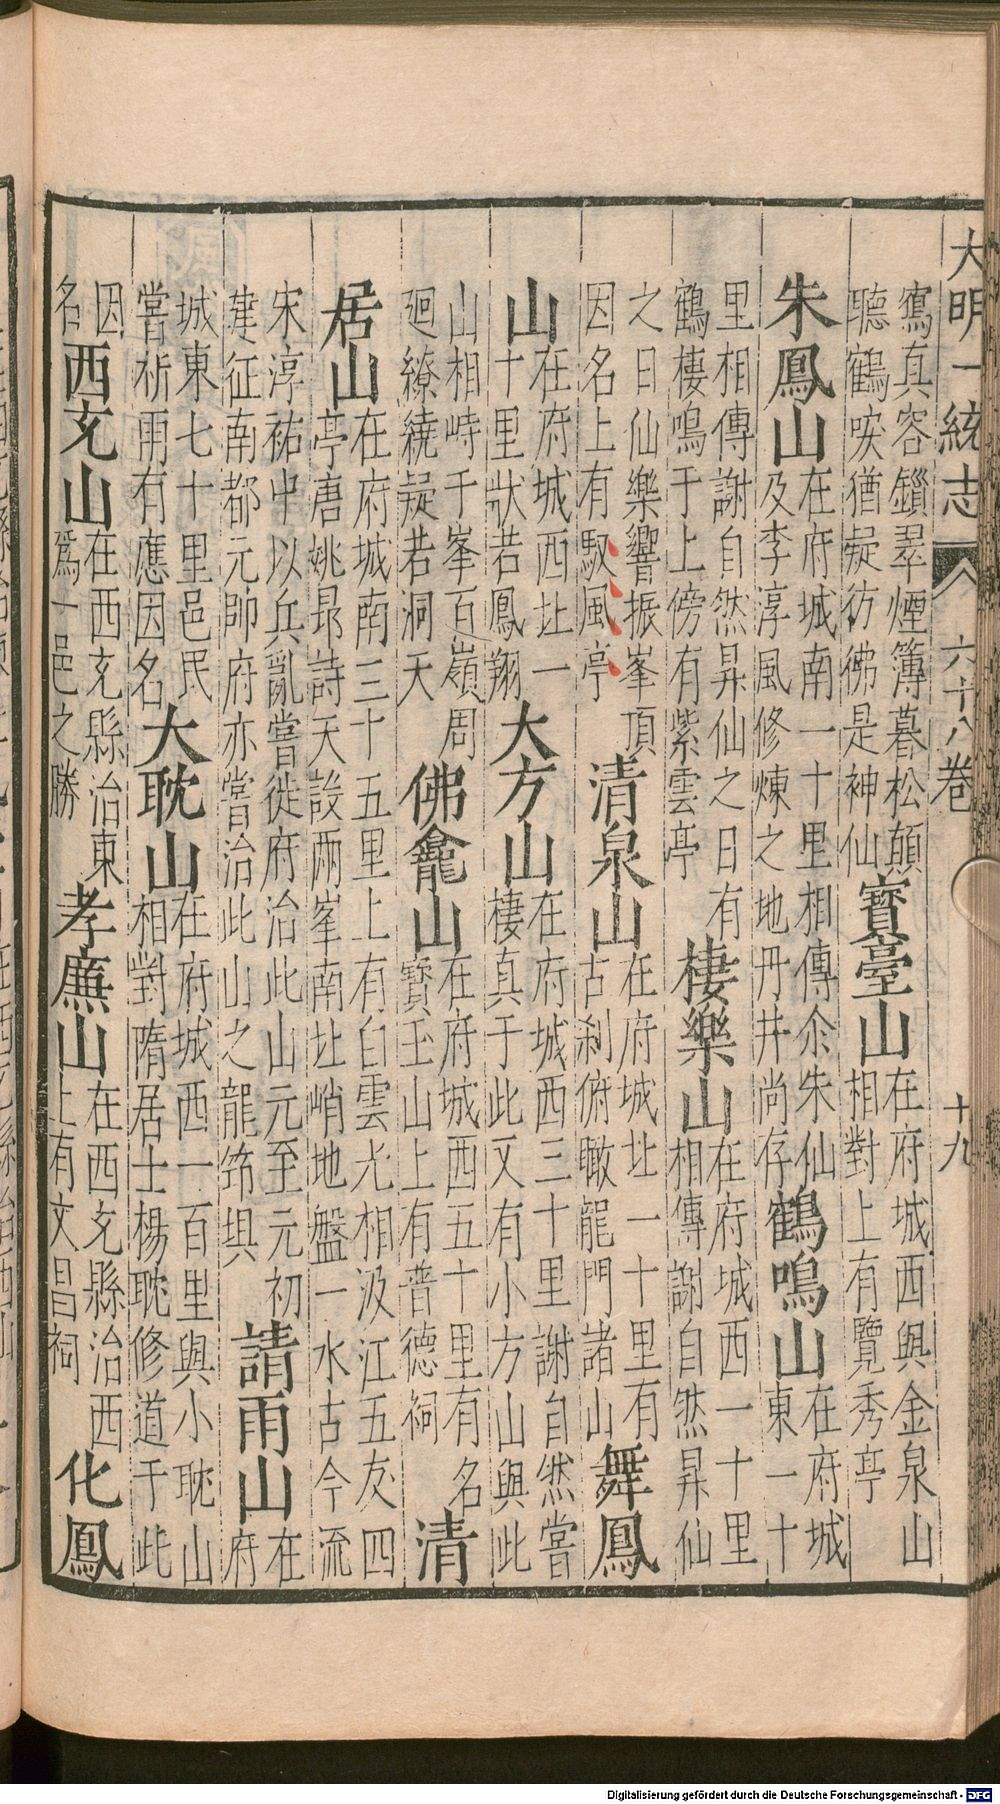 大明一統志 六十八卷 十九
寫真容鏁翠煙簿暮松顛
聽鶴唳猶疑彷彿是神仙
寶臺山
在府城西與金泉山
相對上有覽秀亭
朱鳳山
在府城南一十里相傳尒朱仙
及李淳風修煉之地丹井尚存
鶴鳴山
在府城
東一十
里相傳謝自然昇仙之日有
鶴棲鳴于上傍有紫雲亭
棲樂山
在府城西一十里
相傳謝自然昇仙
之日仙樂響振峯頂
因名上有馭風亭
清泉山
在府城北一十里有
古刹俯瞰龍門諸山
舞鳳
山
在府城西北一
十里狀若鳳翔
大方山
在府城西三十里謝自然嘗
棲真于此又有小方山與此
山相峙千峯百嶺周
廻繚繞疑若洞天
佛龕山
在府城西五十里有名
寶玉山上有普德祠
清
居山
在府城南三十五里上有白雲光相汲江五友四
亭唐姚昻詩天設兩峯南北峭地盤一水古今流
宋淳祐中以兵亂嘗徙府治此山元至元初
建征南都元帥府亦嘗治此山之龍筇埧
請雨山
在
府
城東七十里邑民
嘗祈雨有應因名
大耽山
在府城西一百里與小耽山
相對隋居士楊耽修道于此
因
名
西充山
在西充縣治東
爲一邑之勝
孝廉山
在西充縣治西
上有文昌祠
化鳳
Digitalisierung gefördert durch die Deutsche Forschungsgemeinschaft - DFG